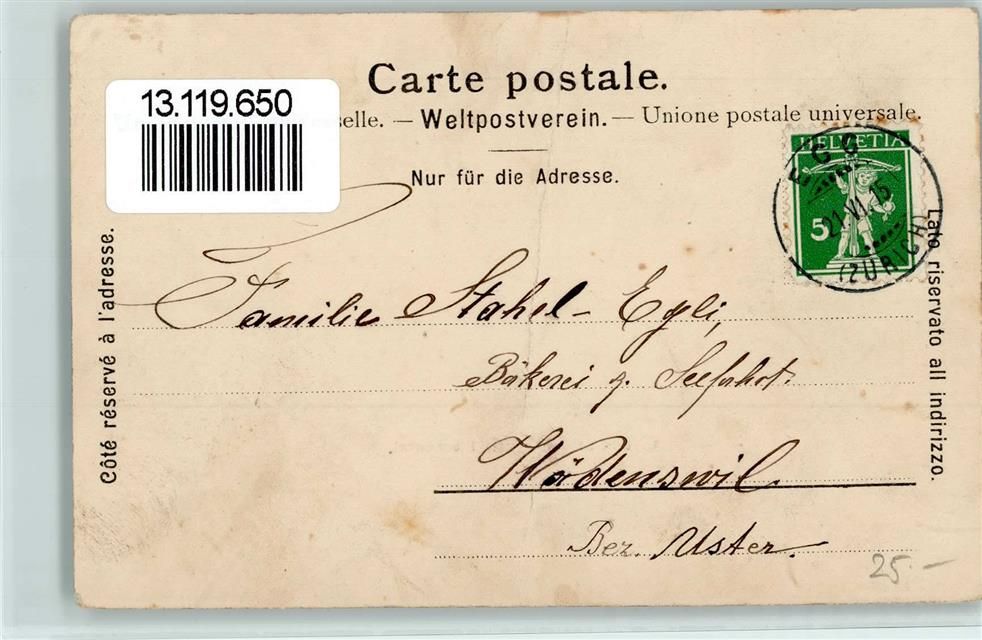 Carte postale.
13.119.650
selle. — Weltpostverein. — Unione postale universale.
Nur für die Adresse.
HELVETIA
5
EGG
21.VI.15
(ZÜRICH)
Côté réservé à l'adresse.
Lato riservato all indirizzo.
Familie Stahel-Egli,
Bäkerei z. Seefahrt.
Wädenswil
Bez. Uster.
25.–